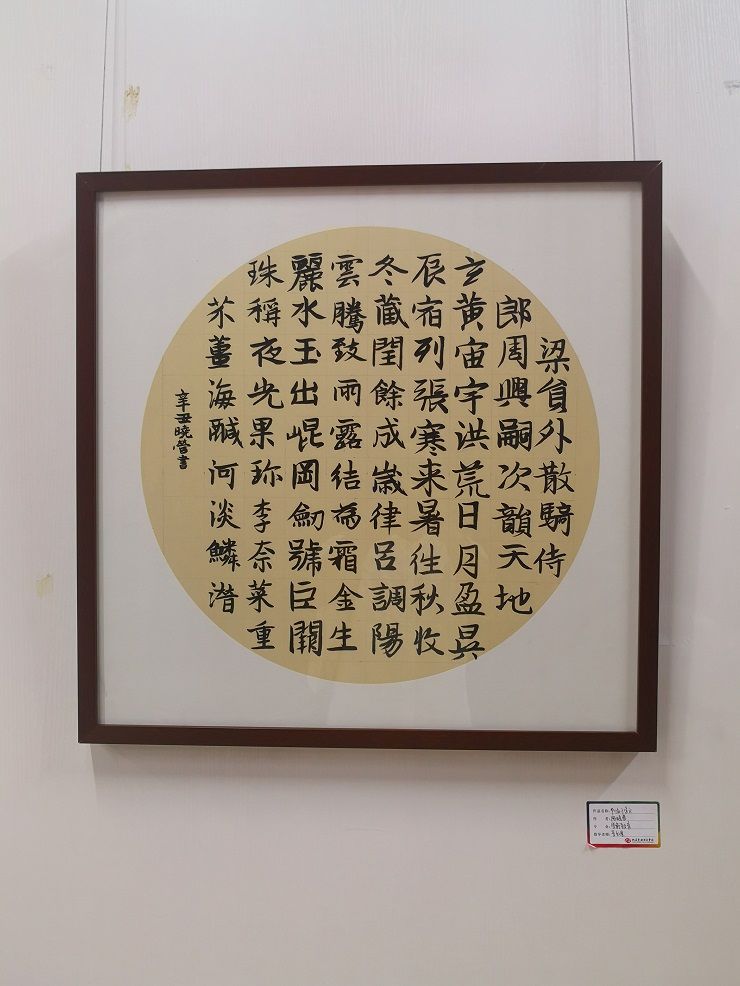 梁貟外散騎侍
郎周興嗣次韻天地
玄黄宙宇洪荒日月盈昃
辰宿列張寒来暑往秋收
冬藏閏餘成歲律吕調陽
雲騰致雨露結為霜金生
麗水玉出崐岡劒號巨闕
珠稱夜光果珍李奈菜重
芥薑海醎河淡鱗潜
辛丑曉營書
作品名称:
作者: